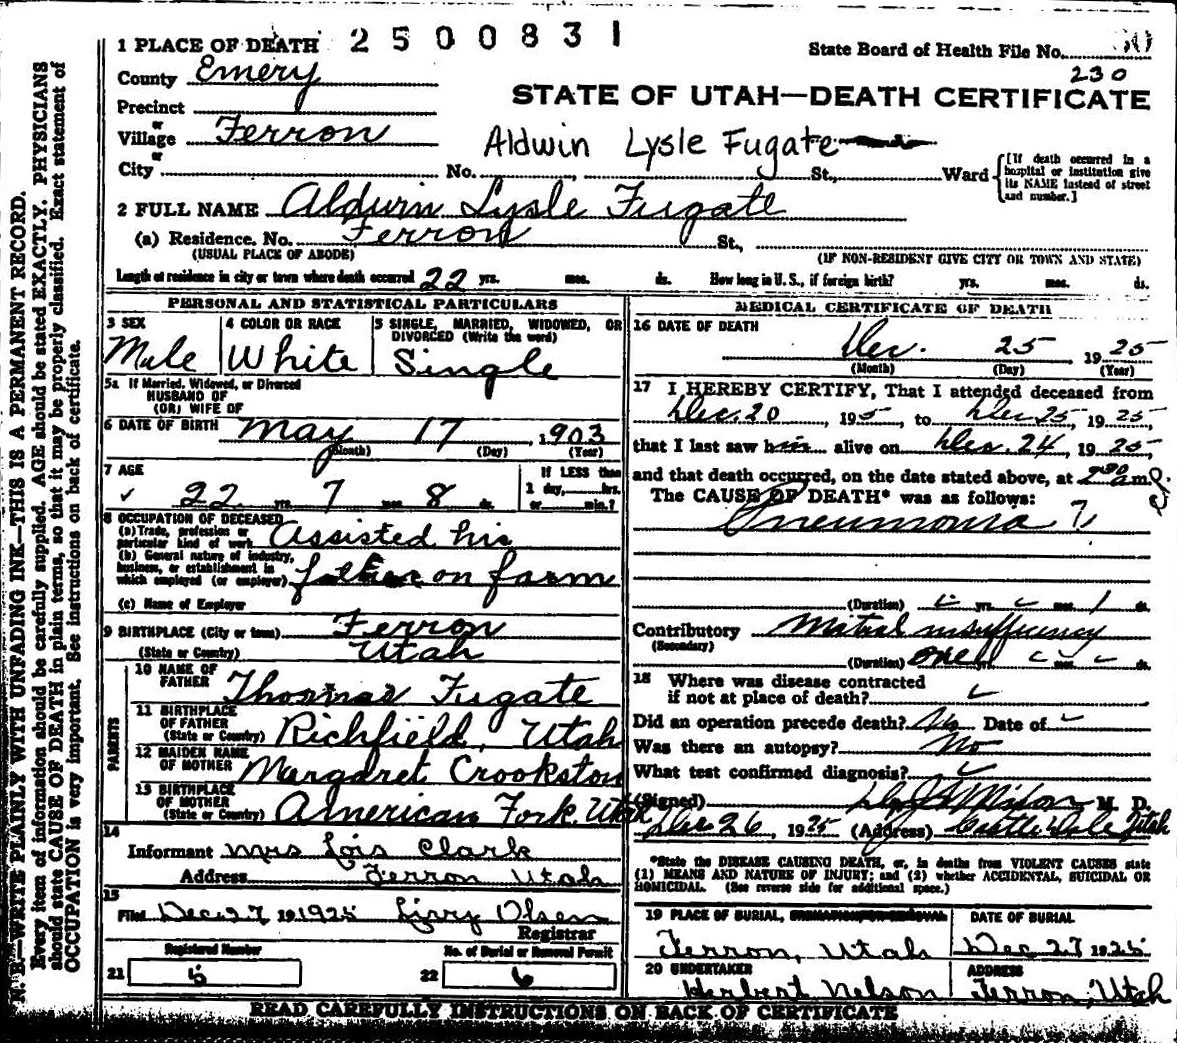 1 PLACE OF DEATH 2500831
State Board of Health File No. 60
230
County Emery
STATE OF UTAH—DEATH CERTIFICATE
Precinct
or
Village Ferron
Aldwin Lysle Fugate
or
City No. St., Ward
[If death occurred in a hospital or institution give its NAME instead of street and number.]
2 FULL NAME Aldwin Lysle Fugate
(a) Residence. No. Ferron St.,
(USUAL PLACE OF ABODE) (IF NON-RESIDENT GIVE CITY OR TOWN AND STATE)
Length of residence in city or town where death occurred 22 yrs. mos. ds. How long in U. S., if foreign birth? yrs. mos. ds.
PERSONAL AND STATISTICAL PARTICULARS
3 SEX
Male
4 COLOR OR RACE
White
5 SINGLE, MARRIED, WIDOWED, OR DIVORCED (Write the word)
Single
5a If Married, Widowed, or Divorced
HUSBAND OF
(OR) WIFE OF
6 DATE OF BIRTH May 17, 1903
(Month) (Day) (Year)
7 AGE
22 yrs. 7 mos. 8 ds.
If LESS than
1 day, hrs.
or min.?
8 OCCUPATION OF DECEASED
(a) Trade, profession or
particular kind of work Assisted his
(b) General nature of industry,
business, or establishment in
which employed (or employer) father on farm
(c) Name of Employer
9 BIRTHPLACE (City or town) Ferron
(State or Country) Utah
PARENTS
10 NAME OF
FATHER Thomas Fugate
11 BIRTHPLACE
OF FATHER
(State or Country) Richfield, Utah
12 MAIDEN NAME
OF MOTHER Margaret Crookston
13 BIRTHPLACE
OF MOTHER
(State or Country) American Fork Utah
14
Informant Mrs Lois Clark
Address Ferron Utah
15
Filed Dec 27 19 1925 Lizzy Olsen
Registrar
Registered Number
21 5
No. of Burial or Removal Permit
22 6
MEDICAL CERTIFICATE OF DEATH
16 DATE OF DEATH
Dec. 25 1925
(Month) (Day) (Year)
17 I HEREBY CERTIFY, That I attended deceased from
Dec. 20, 195, to Dec 25, 1925,
that I last saw him alive on Dec. 24, 1925,
and that death occurred, on the date stated above, at 2 30 a m.
The CAUSE OF DEATH* was as follows:
Pneumonia
(Duration) yrs. mos. 1 ds.
Contributory Mitral insufficiency
(Secondary)
(Duration) one
18 Where was disease contracted
if not at place of death?
Did an operation precede death? No Date of
Was there an autopsy? No
What test confirmed diagnosis?
(Signed) M. D.
Dec 26, 1925 (Address) Castle Dale Utah
*State the DISEASE CAUSING DEATH, or, in deaths from VIOLENT CAUSES state
(1) MEANS AND NATURE OF INJURY; and (2) whether ACCIDENTAL, SUICIDAL OR
HOMICIDAL. (See reverse side for additional space.)
19 PLACE OF BURIAL, CREMATION OR REMOVAL
Ferron, Utah
DATE OF BURIAL
Dec 27 1925
20 UNDERTAKER
Herbert Nelson
ADDRESS
Ferron, Utah
READ CAREFULLY INSTRUCTIONS ON BACK OF CERTIFICATE
N. B.—WRITE PLAINLY WITH UNFADING INK—THIS IS A PERMANENT RECORD.
Every item of information should be carefully supplied. AGE should be stated EXACTLY. PHYSICIANS
should state CAUSE OF DEATH in plain terms, so that it may be properly classified. Exact statement of
OCCUPATION is very important. See instructions on back of certificate.